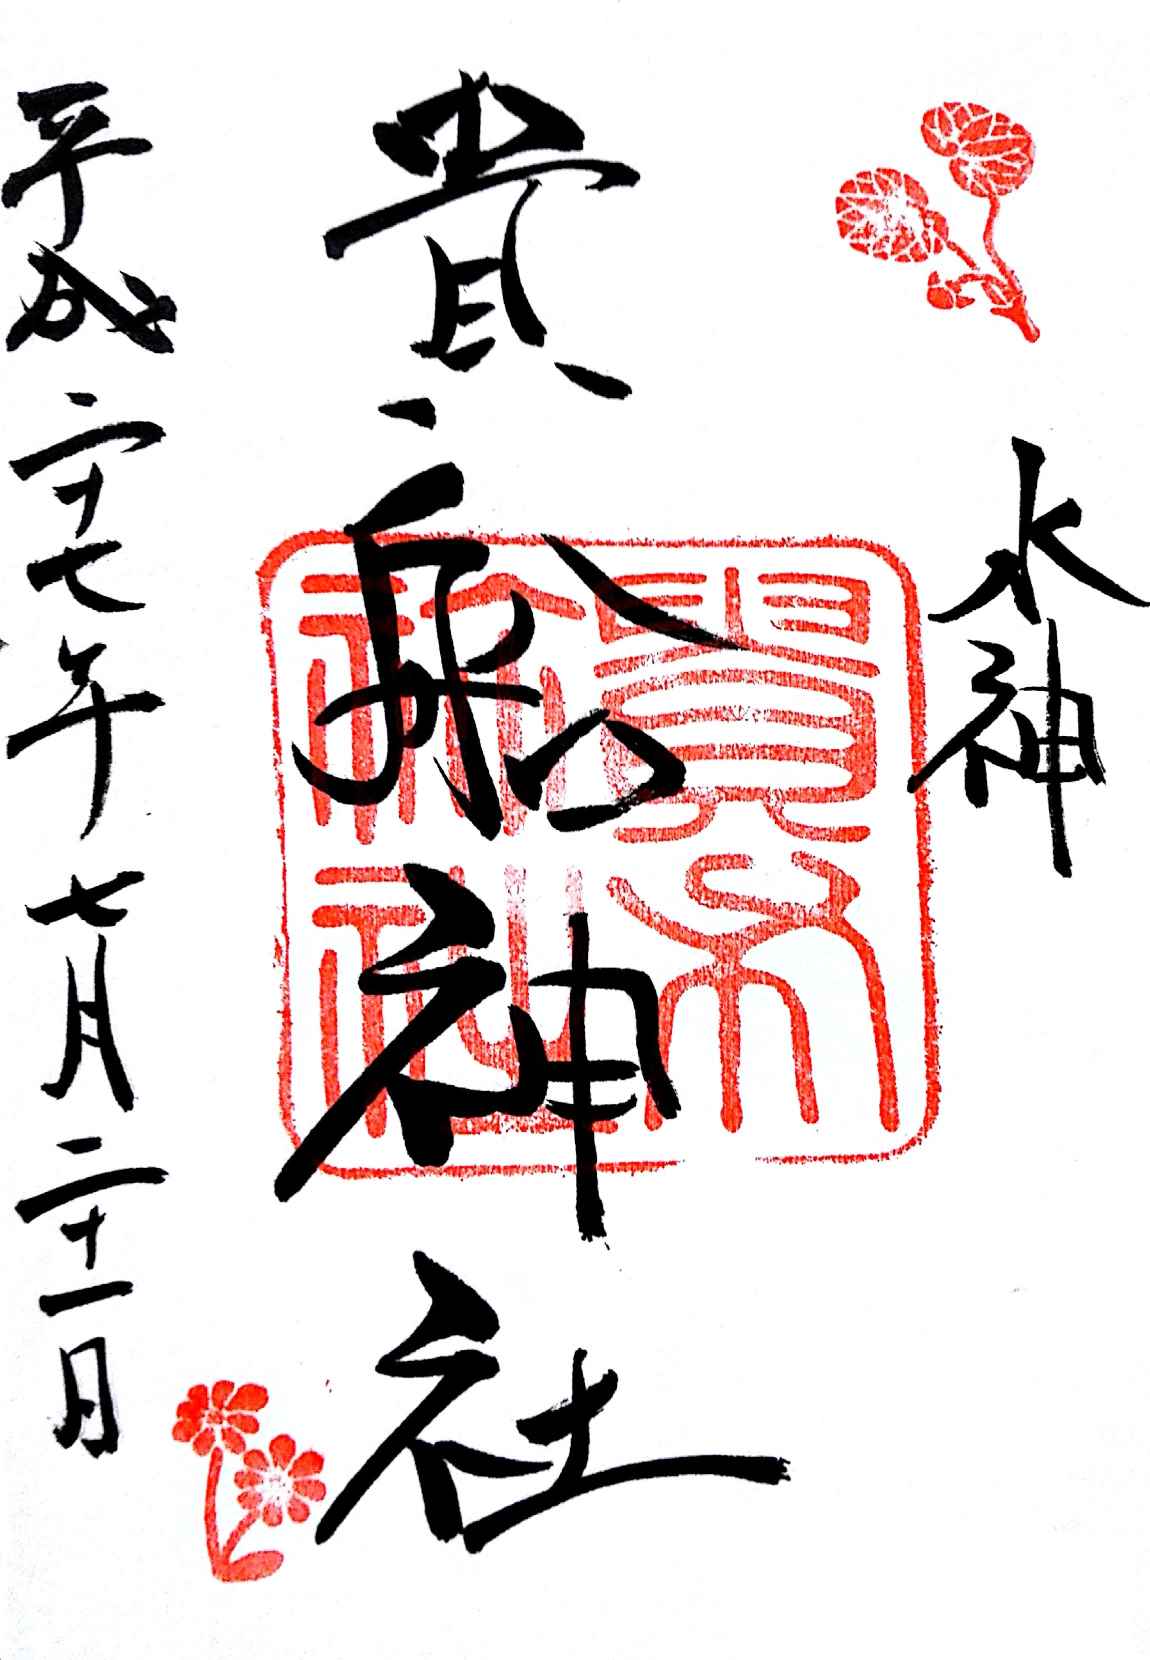 水神
貴船神社
平成二十七年七月二十一日